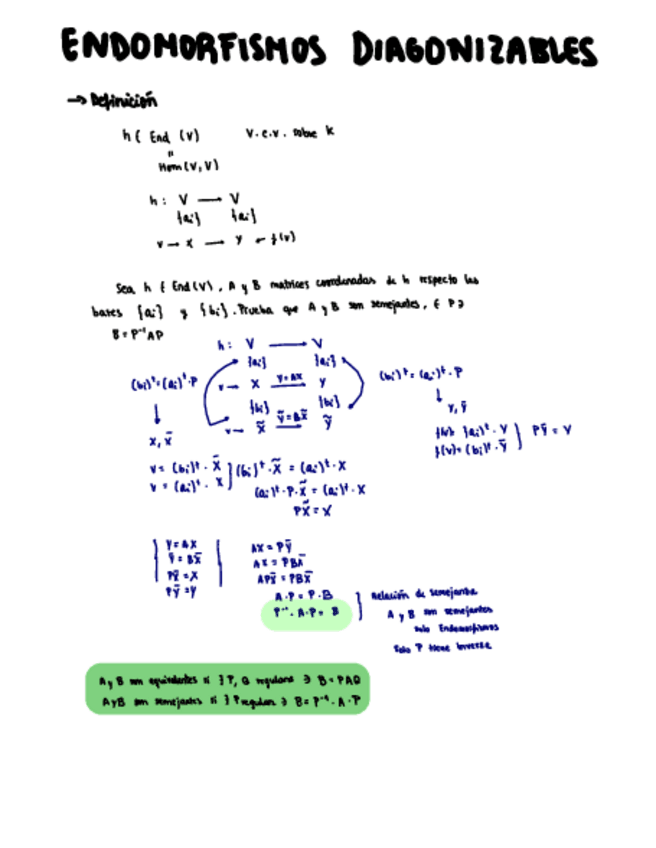 ENDOMORFISMOS DIAGONIZABLES
→ Definición
h ∈ End (V) V. e.v. sobre k
"
Hom(V,V)
h: V → V
{ai} {ai}
v → X → Y ← f(v)
Sea h ∈ End(V), A y B matrices coordenadas de h respecto las
bases {ai} y {bi}. Prueba que A y B son semejantes, ∈ P ∋
B = P⁻¹AP
h: V → V
{ai} {ai}
(bi)ᵗ=(ai)ᵗ·P
v → X Y=AX Y
(bi)ᵗ = (ai)ᵗ·P
{bi} {bi}
v → X̃ Ỹ=BX̃ Ỹ
X, X̄
Y, Ȳ
f(v)= (ai)ᵗ·Y
f(v)= (bi)ᵗ·Ȳ
PȲ = Y
v = (bi)ᵗ·X̄
v = (ai)ᵗ·X
(bi)ᵗ·X̃ = (ai)ᵗ·X
(ai)ᵗ·P·X̃ = (ai)ᵗ·X
PX̃ = X
Y = AX
Ȳ = BX̄
PX̄ = X
PȲ = Y
AX = PȲ
AX = PBX̄
APX̄ = PBX̄
A·P = P·B
P⁻¹·A·P = B
Relación de semejanza
A y B son semejantes
solo Endomorfismos
Solo P tiene inversa
A y B son equivalentes si ∃ P, Q regulares ∋ B = PAQ
A y B son semejantes si ∃ P regular ∋ B = P⁻¹·A·P